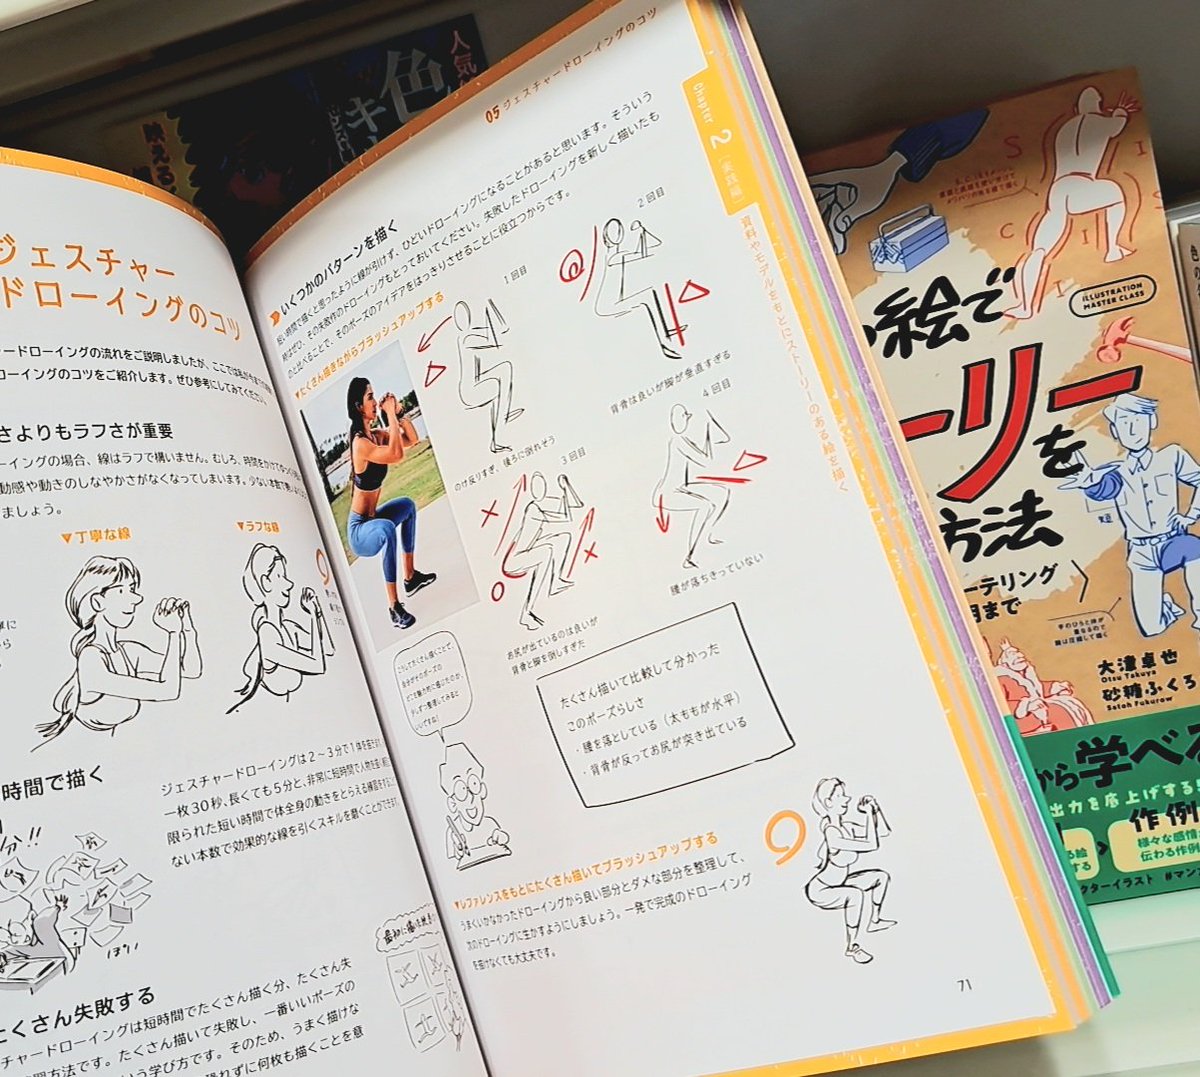 ジェスチャー
ドローイングのコツ
ードローイングの流れをご説明しましたが、ここでは
ローイングのコツをご紹介します。ぜひ参考にしてみてください。
さよりもラフさが重要
ーイングの場合、線はラフで構いません。むしろ、時間をかけて
動感や動きのしなやかさがなくなってしまいます。少ない本数で
ましょう。
▼丁寧な線
▼ラフな線
時間で描く
分!!
ジェスチャードローイングは2〜3分で1体を描き
一枚30秒、長くても5分と、非常に短時間で人物を
限られた短い時間で体全身の動きをとらえる練習をする
ない本数で効果的な線を引くスキルを磨くことができます
たくさん失敗する
チャードローイングは短時間でたくさん描く分、たくさん失
習方法です。たくさん描いて失敗し、一番いいポーズの
いう学び方です。そのため、うまく描けな
恐れずに何枚も描くことを意
05 ジェスチャードローイングのコツ
Chapter 2 [実践編] 資料やモデルをもとにストーリーのある絵を描く
いくつかのパターンを描く
短い時間で描くと思ったように線が引けず、ひどいドローイングになることがあると思います。そういう
時はぜひ、その失敗作のドローイングもとっておいてください。失敗したドローイングを新しく描いたも
のと比べることで、そのポーズのアイデアをはっきりさせることに役立つからです。
▼たくさん描きながらブラッシュアップする
1回目
のけ反りすぎ、後ろに倒れそう
2回目
背骨は良いが脚が垂直すぎる
3回目
お尻が出ているのは良いが
背骨と脚を倒しすぎた
4回目
腰が落ちきっていない
こうしてたくさん描くことで、
自分がそのポーズの
どこを魅力的に感じたのか、
少しずつ整理してみると
いいですね!
たくさん描いて比較して分かった
このポーズらしさ
・腰を落としている（太ももが水平）
・背骨が反ってお尻が突き出ている
▼レファレンスをもとにたくさん描いてブラッシュアップする
うまくいかなかったドローイングから良い部分とダメな部分を整理して、
次のドローイングに生かすようにしましょう。一発で完成のドローイング
を描けなくても大丈夫です。
71
人気
色
キ
映える
絵で
ーリーを
方法
ILLUSTRATION
MASTER CLASS
ーテリング
用まで
大津卓也
Otsu Takuya
砂糖ふくろう
Satoh Fukurow
から学べる
出力を底上げする
作例
様々な感情
伝わる作例
クターイラスト #マン